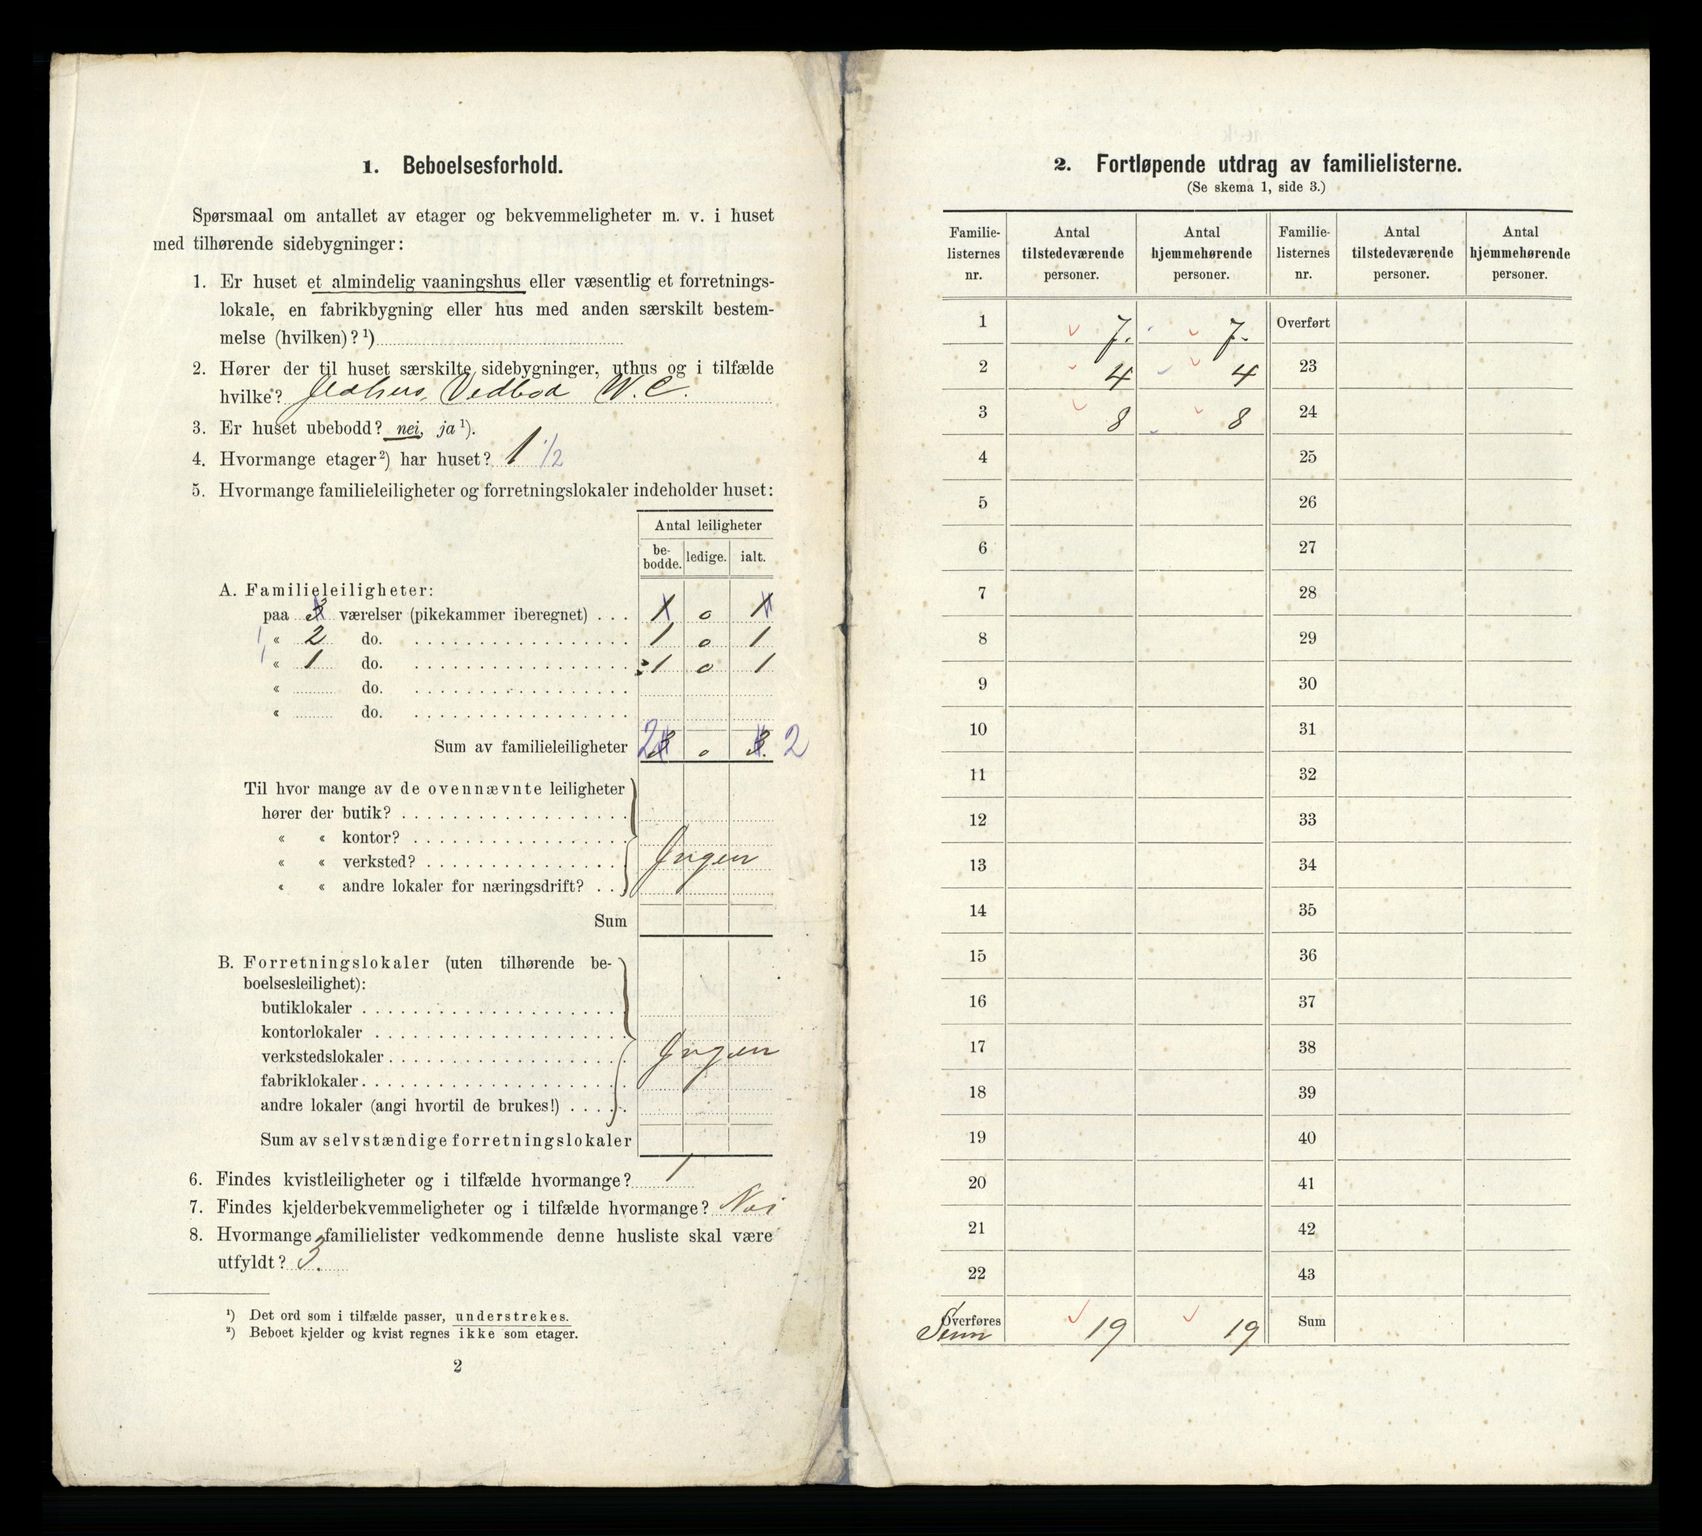 1. Beboelsesforhold.
Spørsmaal om antallet av etager og bekvemmeligheter m. v. i huset
med tilhørende sidebygninger:
1. Er huset et almindelig vaaningshus eller væsentlig et forretnings-
lokale, en fabrikbygning eller hus med anden særskilt bestem-
melse (hvilken)?¹)
2. Hører der til huset særskilte sidebygninger, uthus og i tilfælde
hvilke? Vedbod W. C.
3. Er huset ubebodd? nei, ja¹).
4. Hvormange etager²) har huset? 1 1/2
5. Hvormange familieleiligheter og forretningslokaler indeholder huset:
Antal leiligheter
be-
bodde. ledige. ialt.
A. Familieleiligheter:
paa 3 værelser (pikekammer iberegnet) . . . 1 0 1
" 2 do. 1 0 1
" 1 do. 1 0 1
" do.
" do.
Sum av familieleiligheter 2 3 0 3. 2
Til hvor mange av de ovennævnte leiligheter
hører der butik?
" " kontor?
" " verksted? Ingen
" " andre lokaler for næringsdrift?
Sum
B. Forretningslokaler (uten tilhørende be-
boelsesleilighet):
butiklokaler
kontorlokaler
verkstedslokaler Ingen
fabriklokaler
andre lokaler (angi hvortil de brukes!)
Sum av selvstændige forretningslokaler
6. Findes kvistleiligheter og i tilfælde hvormange? 1
7. Findes kjelderbekvemmeligheter og i tilfælde hvormange? Nei
8. Hvormange familielister vedkommende denne husliste skal være
utfyldt? 3.
¹) Det ord som i tilfælde passer, understrekes.
²) Beboet kjelder og kvist regnes ikke som etager.
2
2. Fortløpende utdrag av familielisterne.
(Se skema 1, side 3.)
Familie- Antal Antal Familie- Antal Antal
listernes tilstedeværende hjemmehørende listernes tilstedeværende hjemmehørende
nr. personer. personer. nr. personer. personer.
1 7. 7. Overført
2 4 4 23
3 8 8 24
4 25
5 26
6 27
7 28
8 29
9 30
10 31
11 32
12 33
13 34
14 35
15 36
16 37
17 38
18 39
19 40
20 41
21 42
22 43
Overføres Sum 19 19 Sum